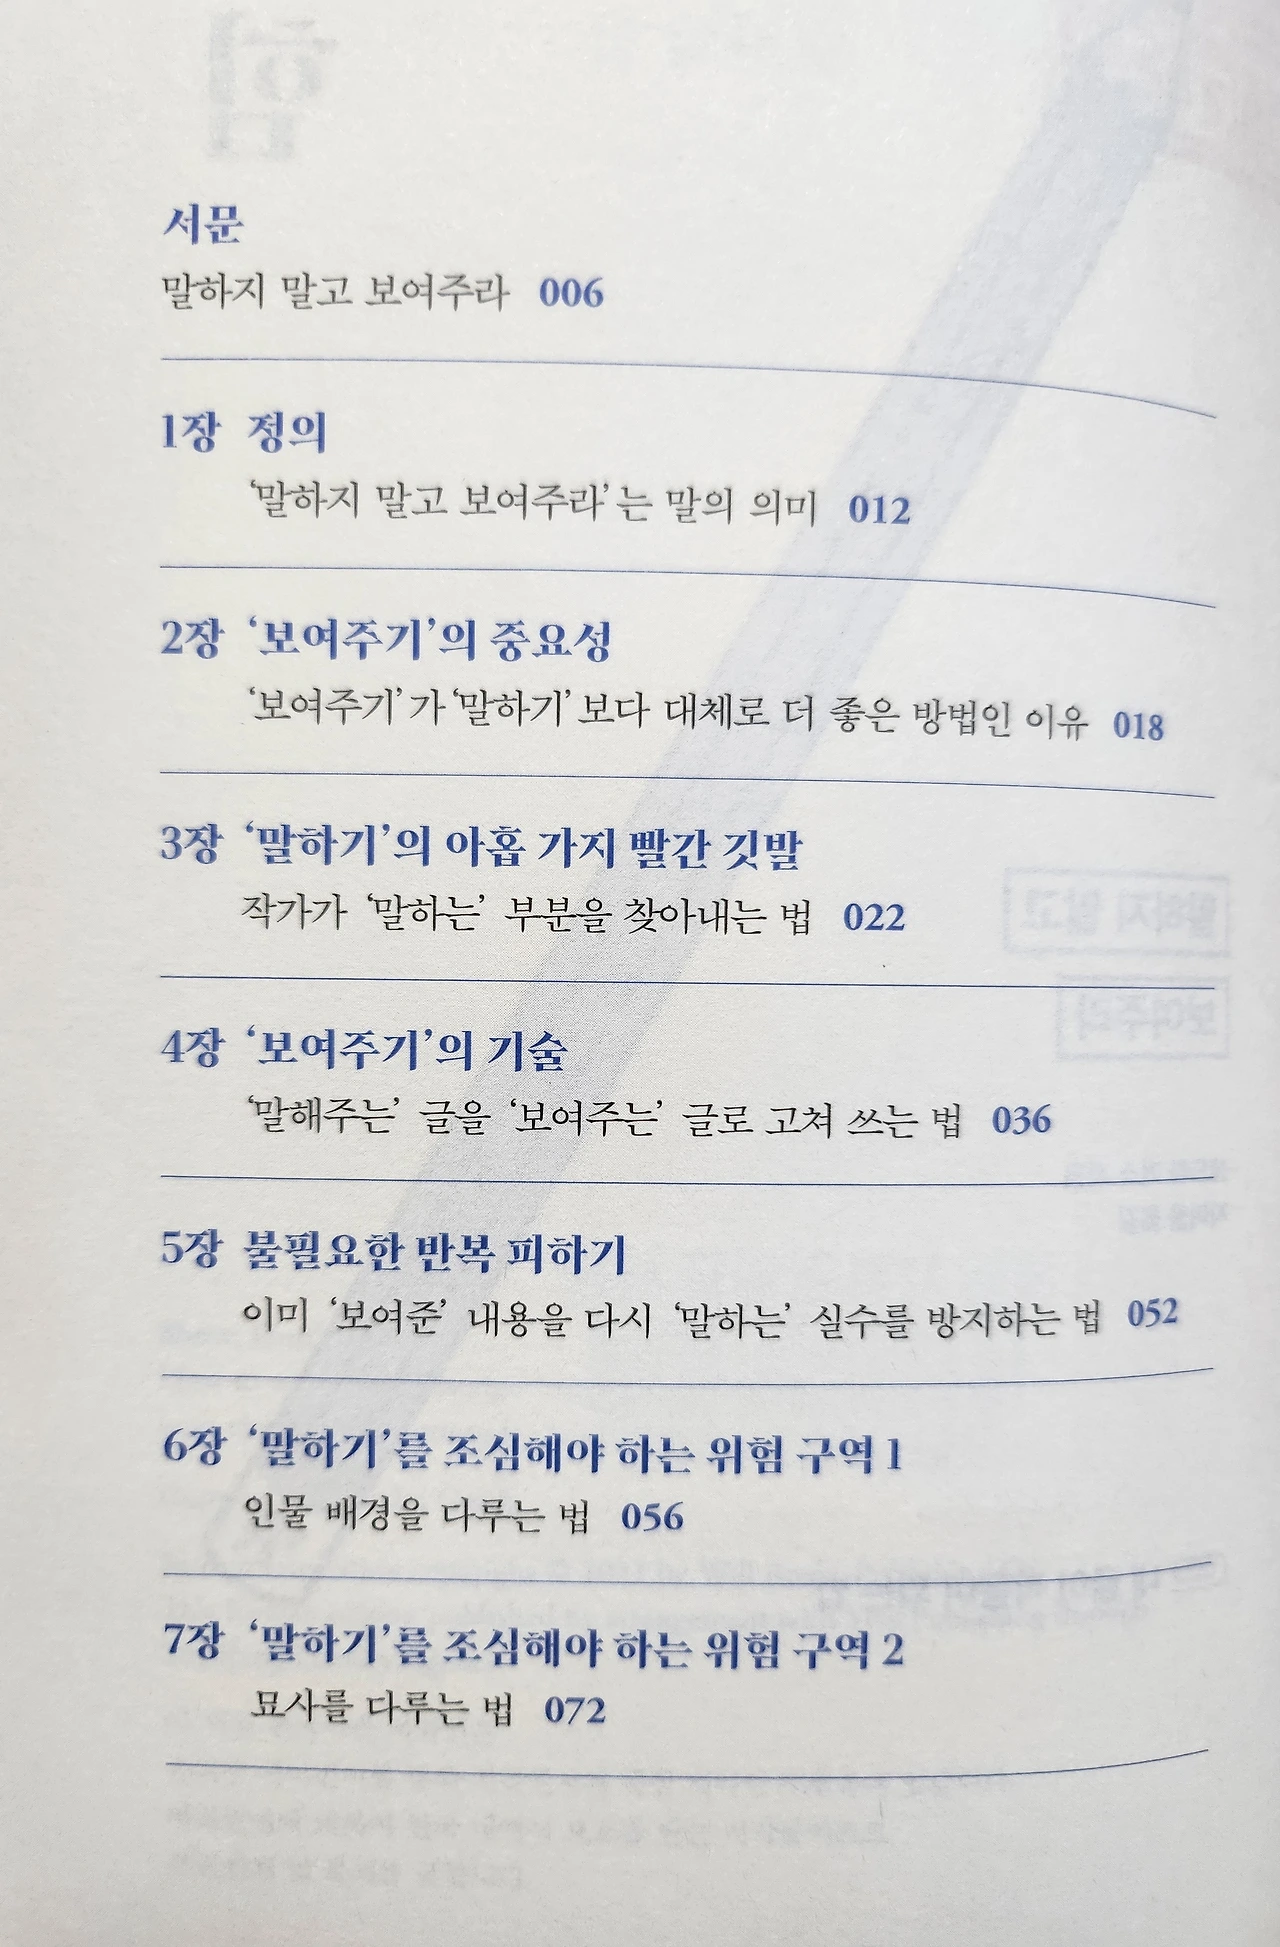 서문
말하지 말고 보여주라 006
1장 정의
‘말하지 말고 보여주라’는 말의 의미 012
2장 ‘보여주기’의 중요성
‘보여주기’가 ‘말하기’보다 대체로 더 좋은 방법인 이유 018
3장 ‘말하기’의 아홉 가지 빨간 깃발
작가가 ‘말하는’ 부분을 찾아내는 법 022
4장 ‘보여주기’의 기술
‘말해주는’ 글을 ‘보여주는’ 글로 고쳐 쓰는 법 036
5장 불필요한 반복 피하기
이미 ‘보여준’ 내용을 다시 ‘말하는’ 실수를 방지하는 법 052
6장 ‘말하기’를 조심해야 하는 위험 구역 1
인물 배경을 다루는 법 056
7장 ‘말하기’를 조심해야 하는 위험 구역 2
묘사를 다루는 법 072
말하지 말고
보여주라